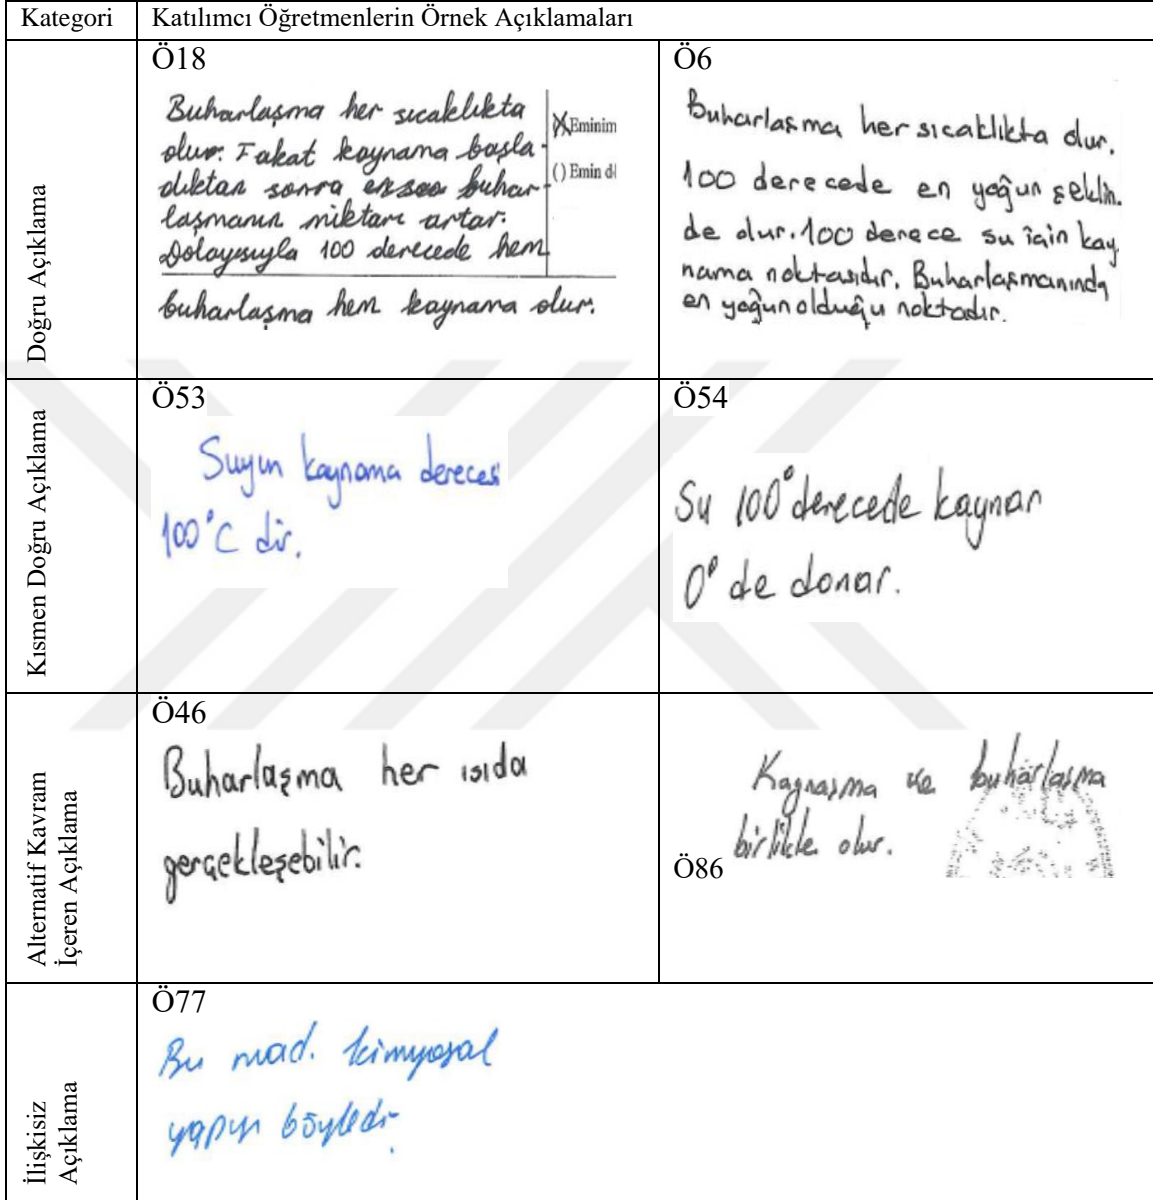 Kategori
Katılımcı Öğretmenlerin Örnek Açıklamaları
Doğru Açıklama
Ö18
Buharlaşma her sıcaklıkta
olur. Fakat kaynama başla
dıktan sonra buhar-
laşmanın miktarı artar.
Dolayısıyla 100 derecede hem
buharlaşma hem kaynama olur.
X Eminim
( ) Emin d
Ö6
Buharlaşma her sıcaklıkta olur.
100 derecede en yoğun şeklin.
de olur. 100 derece su için kay
nama noktasıdır. Buharlaşmanında
en yoğun olduğu noktadır.
Kısmen Doğru Açıklama
Ö53
Suyun kaynama derecesi
100°C dir.
Ö54
Su 100° derecede kaynar
0° de donar.
Alternatif Kavram
İçeren Açıklama
Ö46
Buharlaşma her ısıda
gerçekleşebilir.
Ö86
Kaynaşma ve buharlaşma
birlikte olur.
İlişkisiz
Açıklama
Ö77
Bu mad. kimyasal
yapısı böyledir.